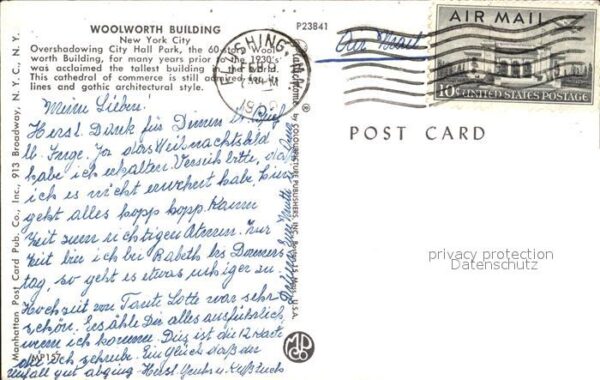 WOOLWORTH BUILDING
New York City
Overshadowing City Hall Park, the 60-story Wool-
worth Building, for many years prior to the 1930's
was acclaimed the tallest building in the world.
This cathedral of commerce is still admired for its
lines and gothic architectural style.
P23841
FLUSHING, N.Y.
FEB
PM
Air Mail
AIR MAIL
10¢ UNITED STATES POSTAGE
POST CARD
Meine Lieben!
Herzl. Dank für Deinen Brief
lb. Inge. Ja das Weihnachtsbild
habe ich erhalten. Verzeih bitte, daß
ich es nicht erwähnt habe. Hier
geht alles hopp hopp. Kaum
Zeit zum richtigen Atmen. Zur
Zeit bin ich bei Babeth bis Donners
tag, so geht es etwas ruhiger zu.
Hochzeit von Tante Lotte war sehr
schön. Erzähle Dir alles ausführlich
wenn ich komme. Dies ist die 12 Karte
die ich schreibe. Ein Glück daß der
Unfall gut abging. Herzl. Grüße u.
Manhattan Post Card Pub. Co., Inc., 913 Broadway, N. Y. C., N. Y.
MP157
by COLOURPICTURE PUBLISHERS, INC.
U.S.A.
privacy protection
Datenschutz